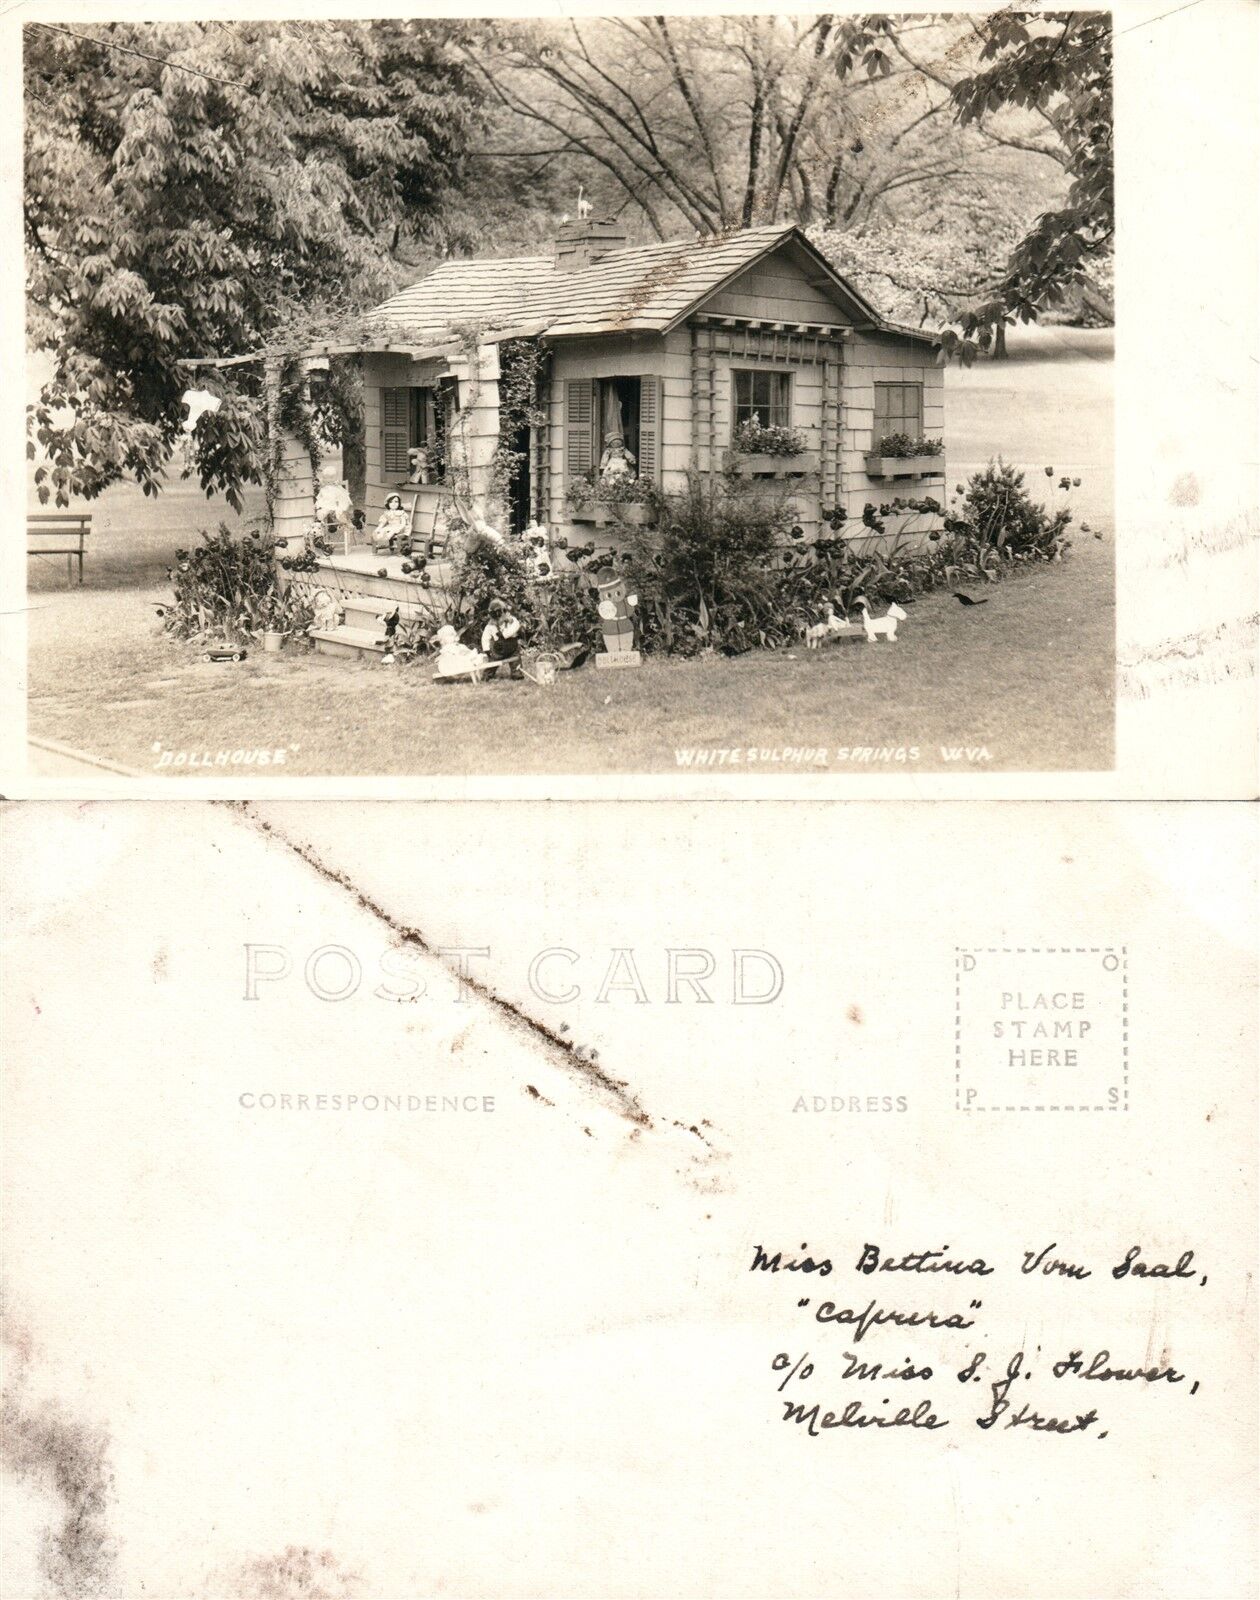 DOLLHOUSE
"DOLLHOUSE"
WHITE SULPHUR SPRINGS W.VA
POST CARD
D O
PLACE
STAMP
HERE
P S
CORRESPONDENCE
ADDRESS
Miss Bettina Vom Saal,
"Caprera"
c/o Miss S. J. Flower,
Melville Street.